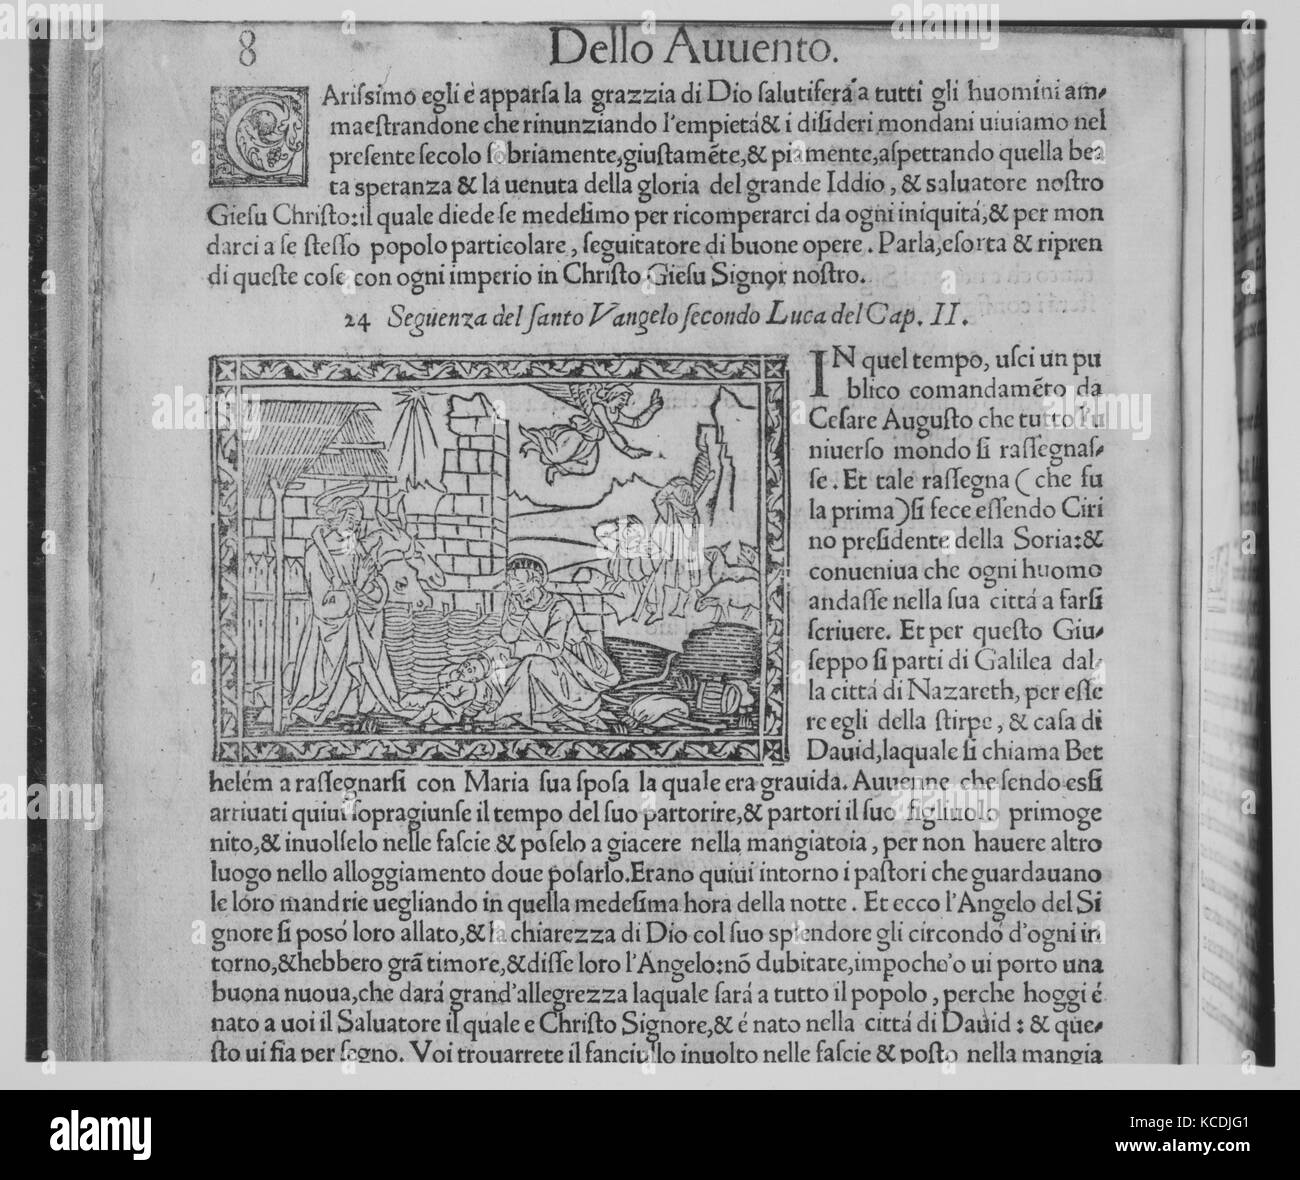 8 Dello Auuento.
CAriſsimo egli è apparſa la grazzia di Dio ſalutiferá a tutti gli huomini am-
maeſtrandone che rinunziando l'empietá & i diſideri mondani uiuiamo nel
preſente ſecolo ſobriamente, giuſtamẽte, & piamente, aſpettando quella bea
ta speranza & la uenuta della gloria del grande Iddio, & saluatore noſtro
Gieſu Chriſto: il quale diede ſe medeſimo per ricomperarci da ogni iniquitá, & per mon
darci a ſe ſteſſo popolo particolare, ſeguitatore di buone opere. Parla, eſorta & ripren
di queſte coſe con ogni imperio in Chriſto Gieſu Signor noſtro.
24 Seguenza del ſanto Vangelo ſecondo Luca del Cap. II.
IN quel tempo, uſci un pu
blico comandamẽto da
Ceſare Auguſto che tutto l'u
niuerſo mondo ſi raſſegnaſ-
ſe. Et tale raſſegna (che fu
la prima) ſi fece eſſendo Ciri
no preſidente della Soria: &
conueniua che ogni huomo
andaſſe nella ſua cittá a farſi
ſcriuere. Et per queſto Giu-
ſeppo ſi parti di Galilea dal-
la cittá di Nazareth, per eſſe
re egli della ſtirpe, & caſa di
Dauid, laquale ſi chiama Bet
helém a raſſegnarſi con Maria ſua ſpoſa la quale era grauida. Auuenne che ſendo eſſi
arriuati quiui ſopragiunſe il tempo del ſuo partorire, & partori il ſuo figliuolo primoge
nito, & inuolſelo nelle faſcie & poſelo a giacere nella mangiatoia, per non hauere altro
luogo nello alloggiamento doue poſarlo. Erano quiui intorno i paſtori che guardauano
le loro mandrie uegliando in quella medeſima hora della notte. Et ecco l'Angelo del Si
gnore ſi posó loro allato, & la chiarezza di Dio col ſuo splendore gli circondó d'ogni in
torno, & hebbero grã timore, & diſſe loro l'Angelo: nõ dubitate, impoche'o ui porto una
buona nuoua, che dará grand'allegrezza laquale ſará a tutto il popolo, perche hoggi é
nato a uoi il Saluatore il quale e Chriſto Signore, & é nato nella cittá di Dauid: & que-
ſto ui ſia per ſegno. Voi trouarrete il fanciullo inuolto nelle faſcie & poſto nella mangia
alamy
Image ID: KCDJG1
www.alamy.com